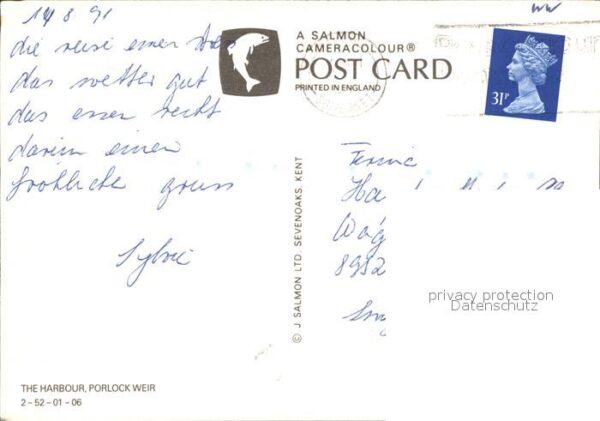 14 8 91
die reise einer
das wetter gut
das essen recht
darein einen
fröhliche gruss
Sylvie
THE HARBOUR, PORLOCK WEIR
2 – 52 – 01 – 06
© J. SALMON LTD. SEVENOAKS. KENT
A SALMON
CAMERACOLOUR®
POST CARD
PRINTED IN ENGLAND
31P
Ha
8952
privacy protection
Datenschutz